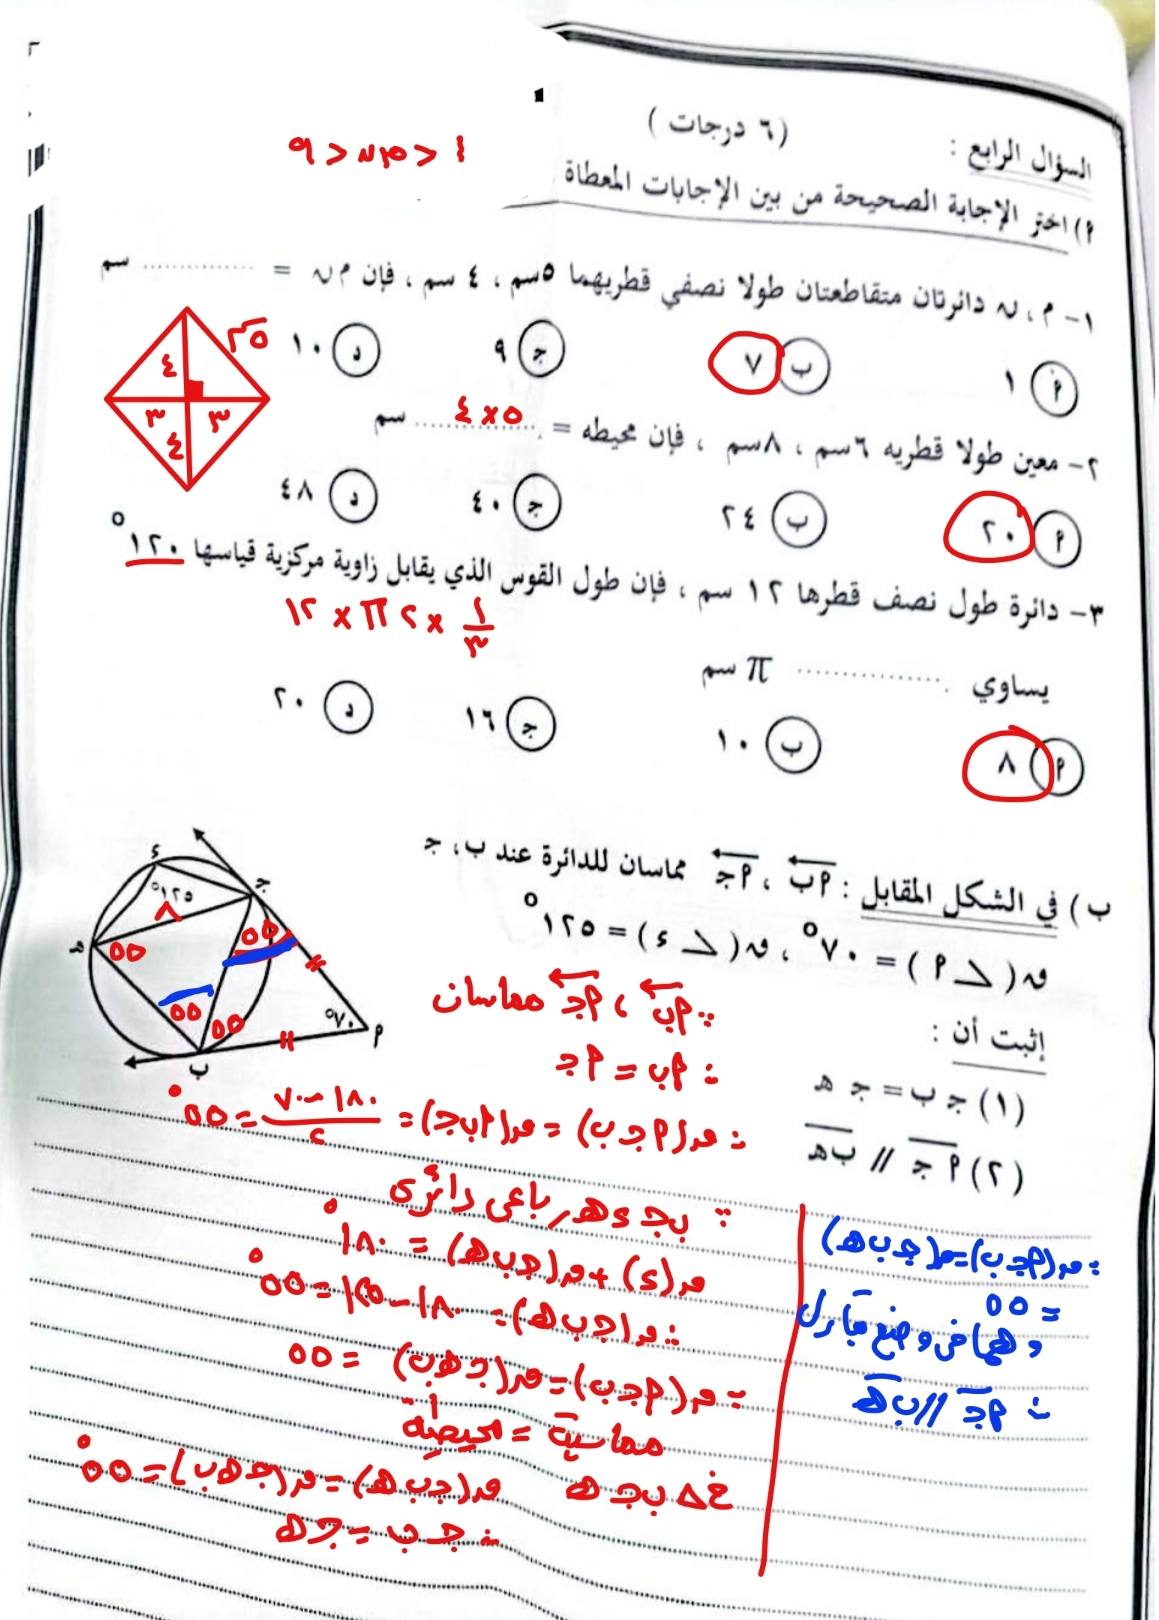 السؤال الرابع : ( ٦ درجات )
١ < م ن < ٩
٩) اختر الإجابة الصحيحة من بين الإجابات المعطاة
١- م ، ن دائرتان متقاطعتان طولا نصفي قطريهما ٥سم ، ٤ سم ، فإن م ن = .............. سم
أ ١ ب ٧ ج ٩ د ١٠
٢- معين طولا قطريه ٦سم ، ٨سم ، فإن محيطه = ٥ × ٤ سم
٤
٣ ٣
٤
٢٥
أ ٢٠ ب ٢٤ ج ٤٠ د ٤٨
٣- دائرة طول نصف قطرها ١٢ سم ، فإن طول القوس الذي يقابل زاوية مركزية قياسها ١٢٠°
١/٣ × ٢ π × ١٢
يساوي .............. π سم
أ ٨ ب ١٠ ج ١٦ د ٢٠
ب) في الشكل المقابل : أب ، أج مماسان للدائرة عند ب، ج
ق(أ) = ٧٠° ، ق(ء) = ١٢٥°
إثبت أن :
(١) ج ب = ج هـ
(٢) أ ج // ب هـ
ء
١٢٥°
ج
هـ
٥٥
٥٥
٥٥
٥٥
٧٠°
أ
ب
∵ أب ، أج مماسان
∴ أب = أج
∴ ق(أ ج ب) = ق(أ ب ج) = (١٨٠ - ٧٠)/٢ = ٥٥°
∵ ب ج ء هـ رباعي دائري
ق(ء) + ق(ج ب هـ) = ١٨٠°
∴ ق(ج ب هـ) = ١٨٠ - ١٢٥ = ٥٥°
∵ ق(أ ج ب) = ق(ج هـ ب) = ٥٥
مماسية = محيطية
في Δ ب ج هـ ق(ج ب هـ) = ق(ج هـ ب) = ٥٥°
∴ ج ب = ج هـ
∵ ق(أ ج ب) = ق(ج ب هـ)
= ٥٥
وهما في وضع تبادل
∴ أ ج // ب هـ